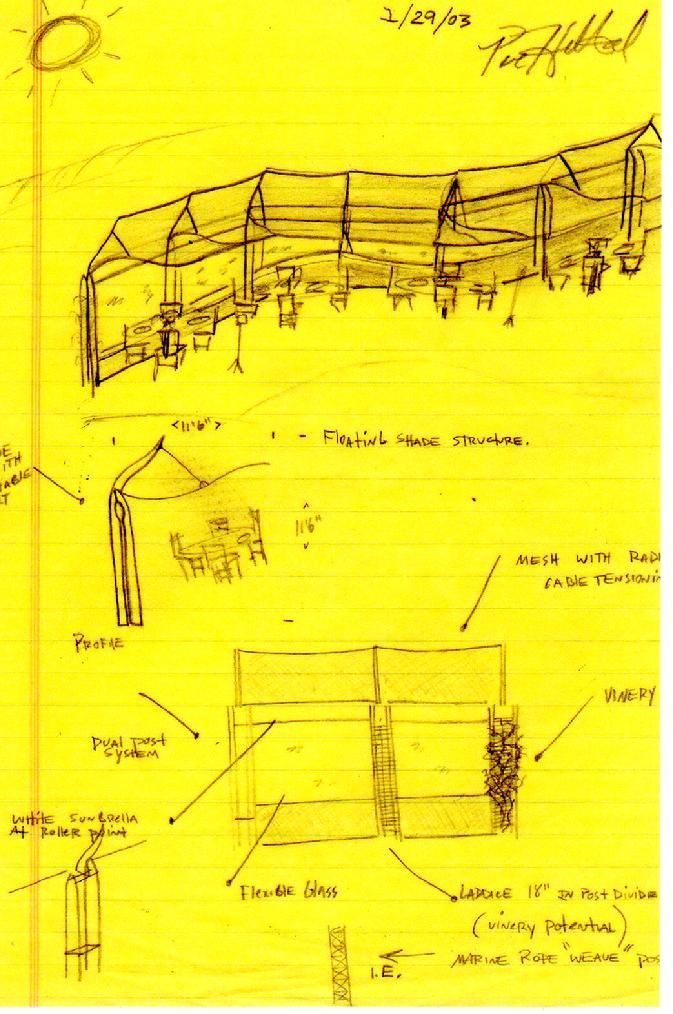 1/29/03
<11'6">
- FLOATING SHADE STRUCTURE.
ITH
11'6"
MESH WITH RADI
CABLE TENSIONIN
PROFILE
VINERY
DUAL POST
SYSTEM
WHITE SUNBRELLA
AT ROLLER POINT
FLEXIBLE GLASS
LADDICE 18" IN POST DIVIDE
(VINERY POTENTIAL)
MARINE ROPE "WEAVE" POS
I.E.